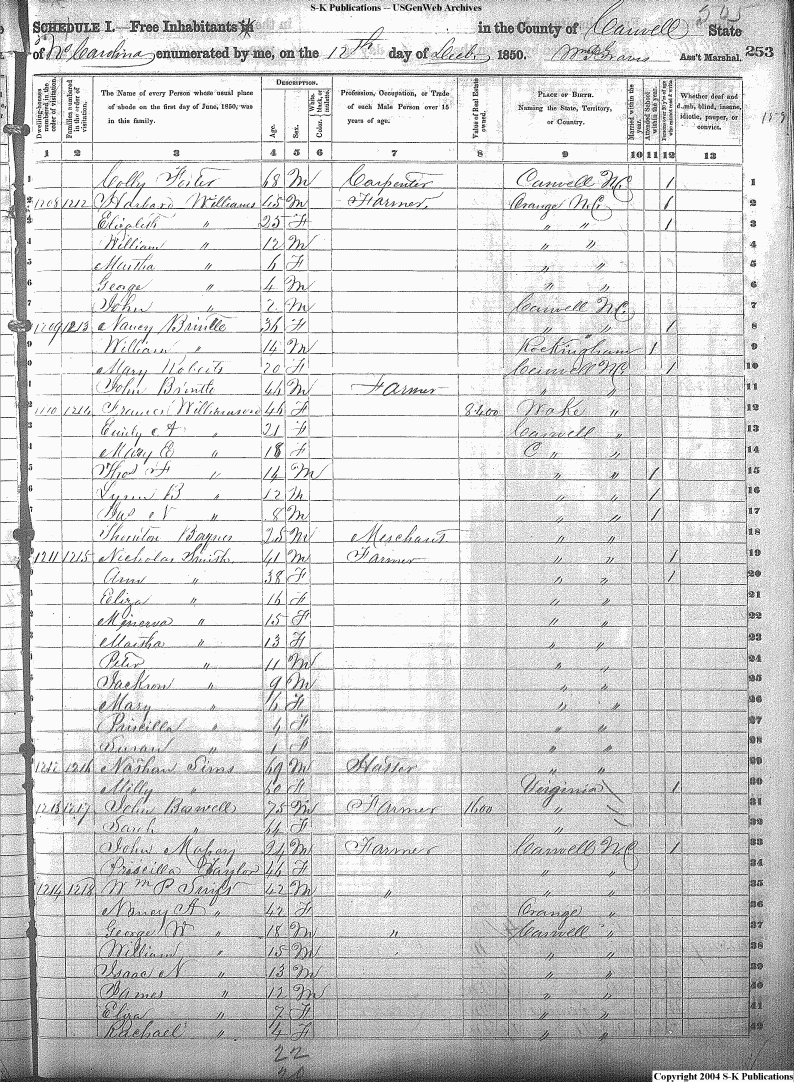 S-K Publications -- USGenWeb Archives
SCHEDULE I.—Free Inhabitants in the County of Caswell State
of No Carolina enumerated by me, on the 12th day of Decb. 1850. Ass't Marshal. 253
Dwelling-houses numbered in the order of visitation.
Families numbered in the order of visitation.
The Name of every Person whose usual place of abode on the first day of June, 1850, was in this family.
DESCRIPTION.
Age.
Sex.
Color. White, black, or mulatto.
Profession, Occupation, or Trade of each Male Person over 15 years of age.
Value of Real Estate owned.
PLACE OF BIRTH. Naming the State, Territory, or Country.
Married within the year.
Attended School within the year.
Whether deaf and dumb, blind, insane, idiotic, pauper, or convict.
1 2 3 4 5 6 7 8 9 10 11 12 13
1 Colly Foster 68 M Carpenter Caswell N.C. 1 1
2 1208 1212 Williams 45 M Farmer. Orange N.C. 1 2
3 Elizabeth " 25 F " " 1 3
4 William " 12 M " " 4
5 Martha " 6 F " " 5
6 George " 4 M " " 6
7 John " 2 M Caswell N.C. 7
8 1209 1213 Nancy Brintle 36 F " " 1 8
9 William " 14 M Rockingham 1 9
10 Mary Roberts 20 F Caswell N.C. 1 10
11 John Brintle 44 M Farmer " " 11
12 1210 1214 Frances Williamson 44 F 8400 Wake " 12
13 Emily A " 21 F Caswell " 13
14 Mary E " 18 F C " " 14
15 Thos F " 14 M " " 1 15
16 B " 12 M " " 1 16
17 N " 8 M " " 1 17
18 Thornton Baynes 25 M Merchant " " 18
19 1211 1215 Nicholas Smith 41 M Farmer " " 1 19
20 Ann " 38 F " " 1 20
21 Eliza " 16 F " " 21
22 Minerva " 15 F " " 22
23 Martha " 13 F " " 23
24 Peter " 11 M " " 24
25 Jackson " 9 M " " 25
26 Mary " 6 F " " 26
27 Priscilla " 4 F " " 27
28 Susan " 1 F " " 28
29 1212 1216 Nathan Sims 69 M Hatter " " 29
30 Milly " 60 F Virginia 1 30
31 1213 1217 John Boswell 75 M Farmer 1600 " 31
32 Sarah " 64 F " 32
33 John 24 M Farmer Caswell N.C. 1 33
34 Priscilla Taylor 44 F " " 34
35 1214 1218 Wm P 42 M " " " 35
36 Nancy A " 42 F Orange " 36
37 George W " 18 M " Caswell " 37
38 William " 15 M " " 38
39 Isaac N " 13 M " " 39
40 James " 12 M " " 40
41 Eliza " 7 F " " 41
42 Rachael " 4 F " " 42
22
20
Copyright 2004 S-K Publications